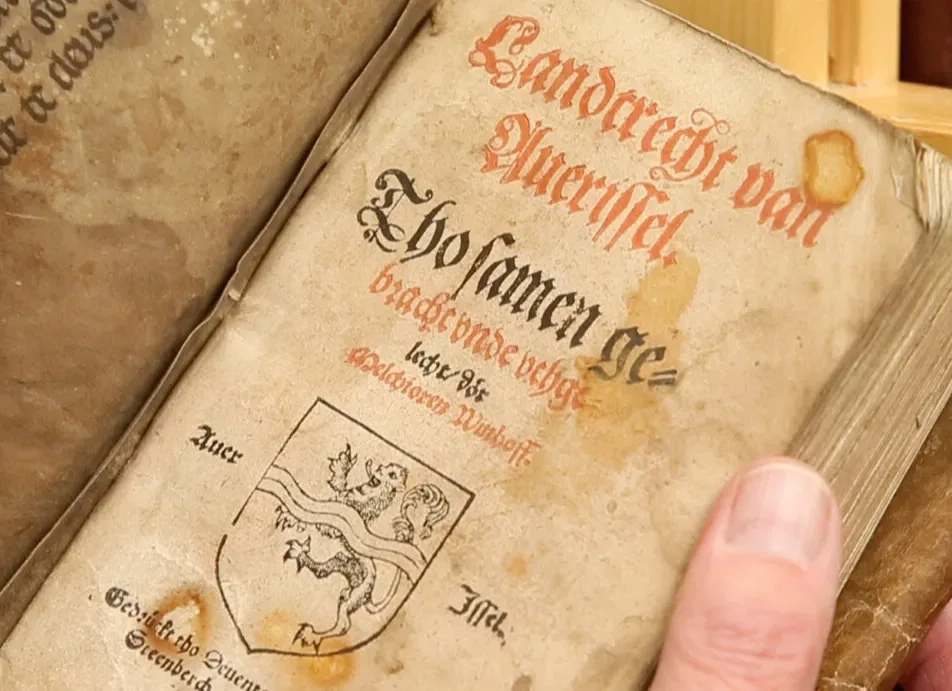 er
de deus
Landtrecht van
Auerissel.
Tho samen ge-
bracht vnde vthge
lecht/ dör
Melchioren Winhoff.
Auer
Issel.
Gedrückt tho Deuent
Steenberch